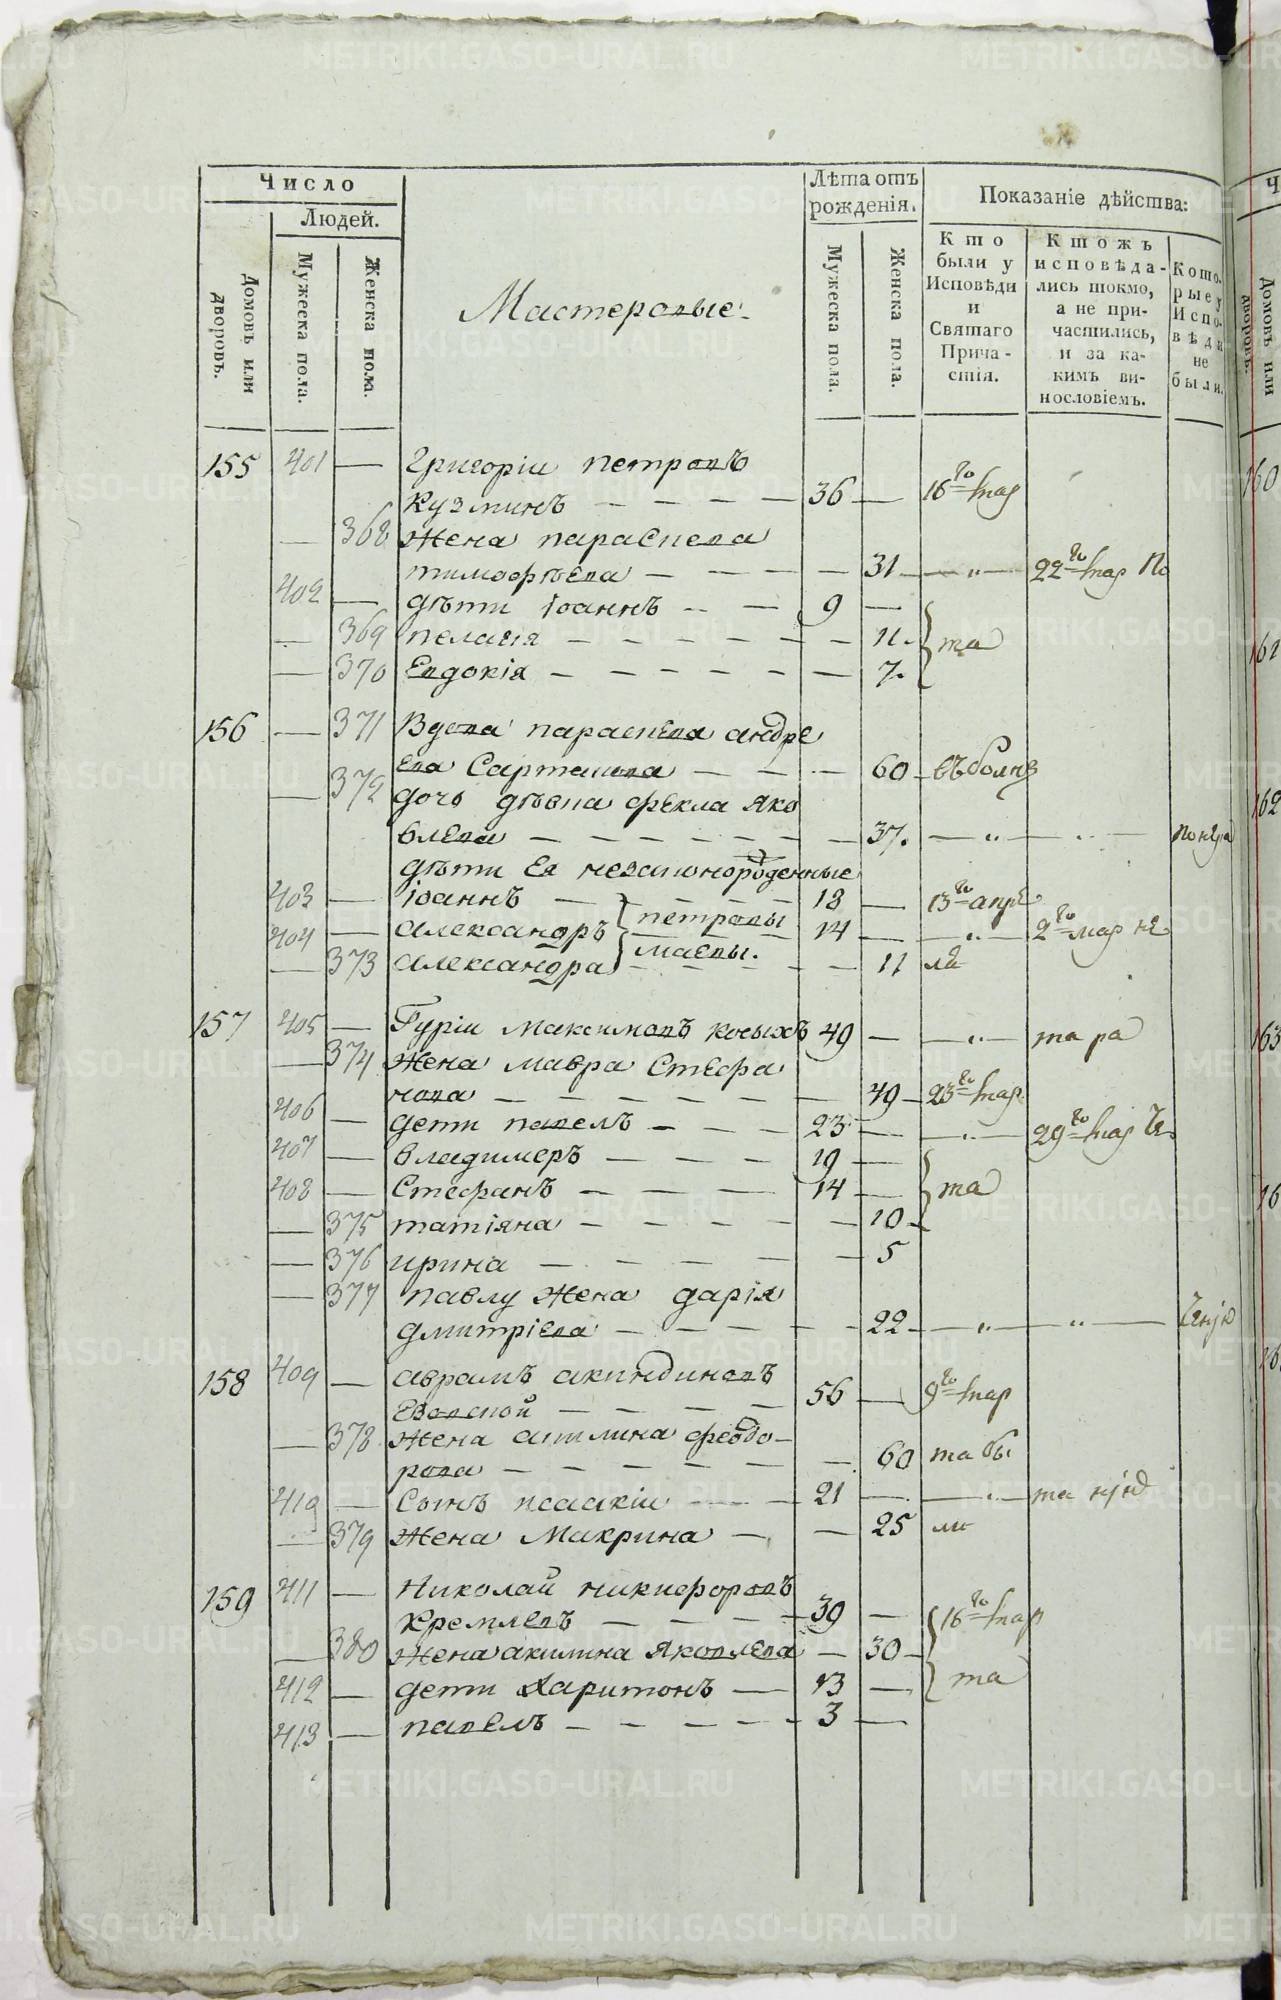 Число
Людей.
Домовъ или дворовъ.
Мужеска пола.
Женска пола.
Мастеровые.
Лѣта отъ рожденія.
Мужеска пола.
Женска пола.
Показаніе дѣйства:
Кто были у Исповѣди и Святаго Причастія.
Ктожъ исповѣдались токмо, а не причастились, и за какимъ винословіемъ.
Которые у Исповѣди не были.
155 401 — Григоріи петровъ
кузминъ — 36 — 16го мар
— 368 жена параскева
тимофѣева — 31 — „ — 22го мар
402 — дѣти іоаннъ — 9 —
— 369 пелагія — 11. та
— 370 Евдокія — 7.
156 — 371 Вдова параскева андре
ева — 60
— 372 дочь дѣвка фекла яко
влева — 37. — „ —
дѣти ея незаконорожденные
403 — іоаннъ — 18 — 13го апр
404 — александръ петровы 14 — „ — 2го мар
— 373 александра — 11
157 405 — Гуріи Максимовъ 49 — „ —
— 374 жена мавра Стефа
нова — 49 — 23го мар
406 — дети павелъ — 23 — „ — 29го мар
407 — владимеръ — 19 —
408 — Стефанъ — 14 — та
— 375 татіяна — 10
— 376 ирина — 5
— 377 павлу жена дарія
дмитріева — 22 — „ — „ —
158 409 — аврамъ акиндиновъ
56 — 9го мар
— 378 жена акилина феодо-
рова — 60
410 — Сынъ — 21 —
— 379 жена Макрина — 25
159 411 — Николай никифоровъ
Кремлевъ — 39 — 16го мар
— 380 жена акилина яковлева — 30
412 — дети Харитонъ — 13 — та
413 — павелъ — 3 —
160
161
162
163
METRIKI.GASO-URAL.RU